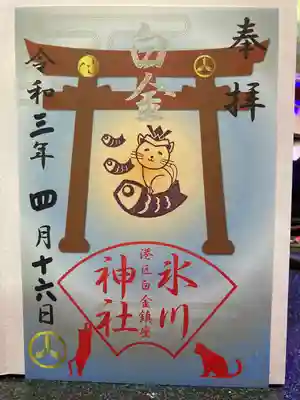 奉拝
白金
令和三年四月十六日
氷川
港区白金鎮座
神社